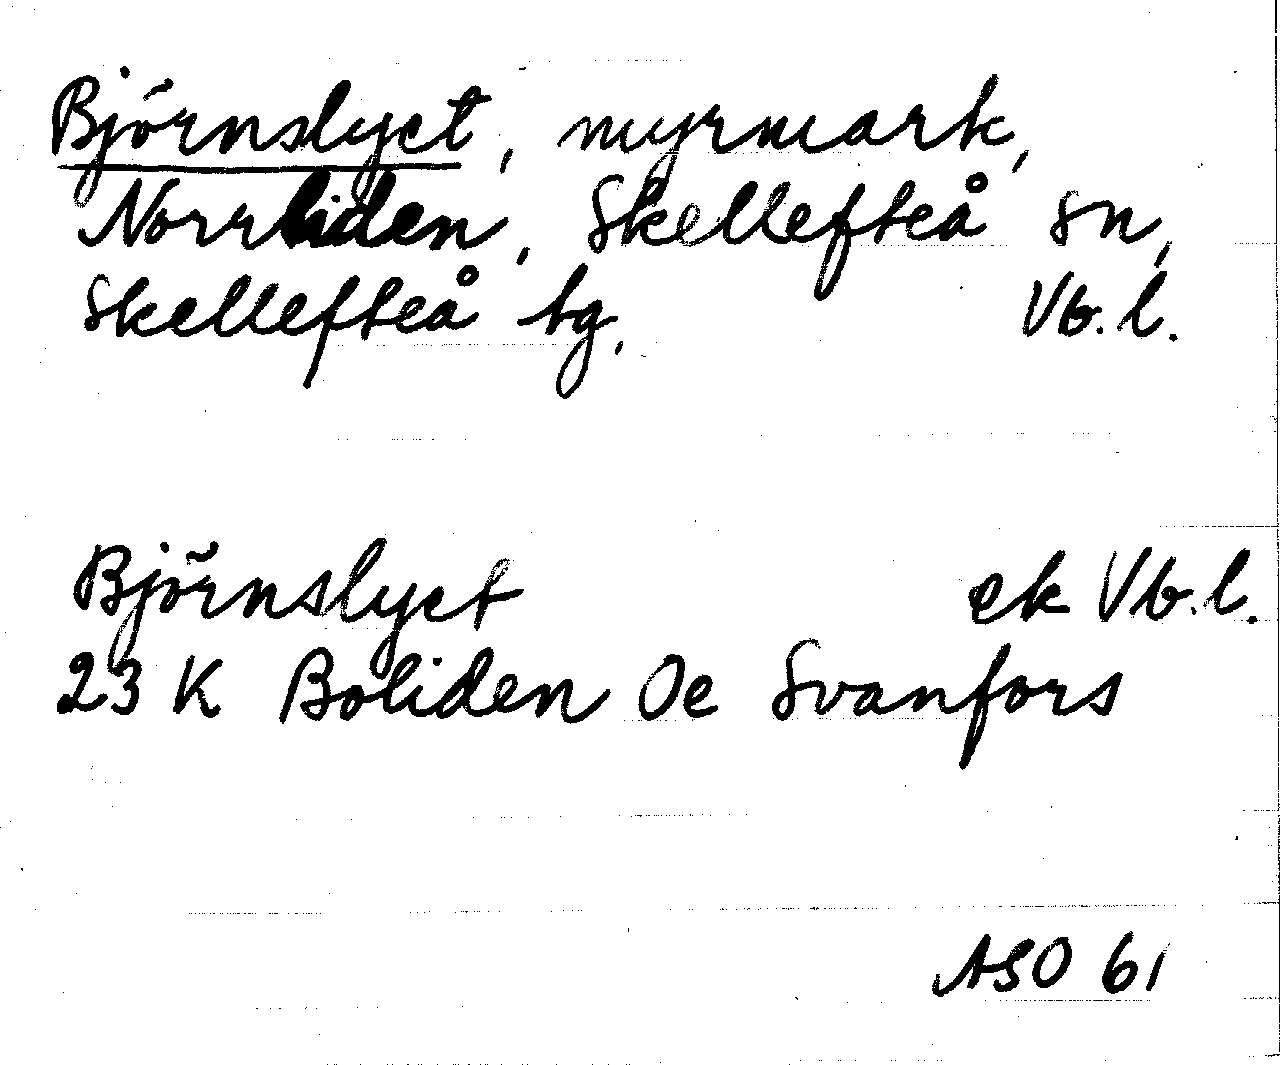 Björnslyet, myrmark,
Norrliden, Skellefteå sn,
Skellefteå tg, Vb. l.
Björnslyet ek Vb. l.
23 K Boliden Oe Svanfors
ASO 61